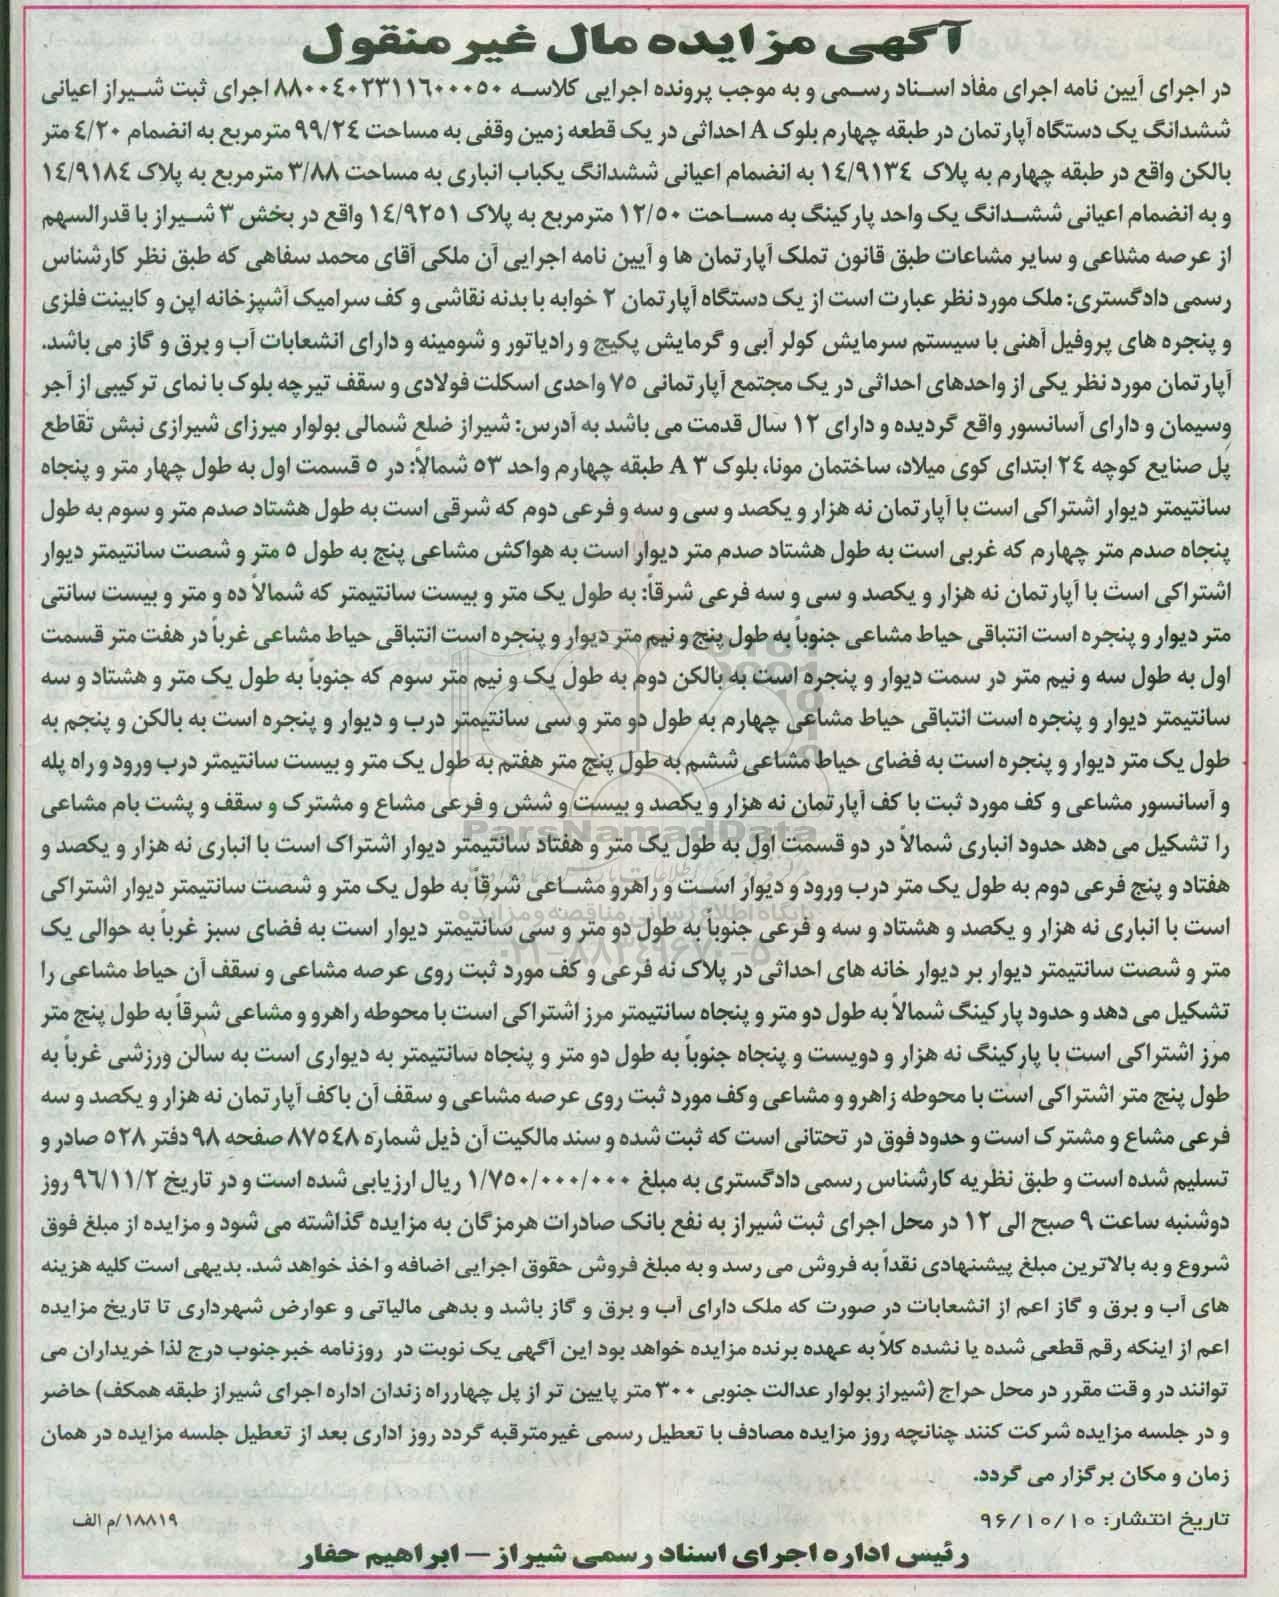 آگهی مزایده مال غیر منقول
در اجرای آیین نامه اجرای مفاد اسناد رسمی و به موجب پرونده اجرایی کلاسه ۸۸۰۰۴۰۲۳۱۱۶۰۰۰۵۰ اجرای ثبت شیراز اعیانی
ششدانگ یک دستگاه آپارتمان در طبقه چهارم بلوک A احداثی در یک قطعه زمین وقفی به مساحت ۹۹/۲۴ مترمربع به انضمام ۴/۲۰ متر
بالکن واقع در طبقه چهارم به پلاک ۱۴/۹۱۳۴ به انضمام اعیانی ششدانگ یکباب انباری به مساحت ۳/۸۸ مترمربع به پلاک ۱۴/۹۱۸۴
و به انضمام اعیانی ششدانگ یک واحد پارکینگ به مساحت ۱۲/۵۰ مترمربع به پلاک ۱۴/۹۲۵۱ واقع در بخش ۳ شیراز با قدرالسهم
از عرصه مشاعی و سایر مشاعات طبق قانون تملک آپارتمان ها و آیین نامه اجرایی آن ملکی آقای محمد سفاهی که طبق نظر کارشناس
رسمی دادگستری: ملک مورد نظر عبارت است از یک دستگاه آپارتمان ۲ خوابه با بدنه نقاشی و کف سرامیک آشپزخانه اپن و کابینت فلزی
و پنجره های پروفیل آهنی با سیستم سرمایش کولر آبی و گرمایش پکیج و رادیاتور و شومینه و دارای انشعابات آب و برق و گاز می باشد.
آپارتمان مورد نظر یکی از واحدهای احداثی در یک مجتمع آپارتمانی ۷۵ واحدی اسکلت فولادی و سقف تیرچه بلوک با نمای ترکیبی از آجر
وسیمان و دارای آسانسور واقع گردیده و دارای ۱۲ سال قدمت می باشد به آدرس: شیراز ضلع شمالی بولوار میرزای شیرازی نبش تقاطع
پل صنایع کوچه ۲۴ ابتدای کوی میلاد، ساختمان مونا، بلوک A ۳ طبقه چهارم واحد ۵۳ شمالاً: در ۵ قسمت اول به طول چهار متر و پنجاه
سانتیمتر دیوار اشتراکی است با آپارتمان نه هزار و یکصد و سی و سه و فرعی دوم که شرقی است به طول هشتاد صدم متر و سوم به طول
پنجاه صدم متر چهارم که غربی است به طول هشتاد صدم متر دیوار است به هواکش مشاعی پنج به طول ۵ متر و شصت سانتیمتر دیوار
اشتراکی است با آپارتمان نه هزار و یکصد و سی و سه فرعی شرقاً: به طول یک متر و بیست سانتیمتر که شمالاً ده و متر و بیست سانتی
متر دیوار و پنجره است انتباقی حیاط مشاعی جنوباً به طول پنج و نیم متر دیوار و پنجره است انتباقی حیاط مشاعی غرباً در هفت متر قسمت
اول به طول سه و نیم متر در سمت دیوار و پنجره است به بالکن دوم به طول یک و نیم متر سوم که جنوباً به طول یک متر و هشتاد و سه
سانتیمتر دیوار و پنجره است انتباقی حیاط مشاعی چهارم به طول دو متر و سی سانتیمتر درب و دیوار و پنجره است به بالکن و پنجم به
طول یک متر دیوار و پنجره است به فضای حیاط مشاعی ششم به طول پنج متر هفتم به طول یک متر و بیست سانتیمتر درب ورود و راه پله
و آسانسور مشاعی و کف مورد ثبت با کف آپارتمان نه هزار و یکصد و بیست و شش و فرعی مشاع و مشترک و سقف و پشت بام مشاعی
را تشکیل می دهد حدود انباری شمالاً در دو قسمت اول به طول یک متر و هفتاد سانتیمتر دیوار اشتراک است با انباری نه هزار و یکصد و
هفتاد و پنج فرعی دوم به طول یک متر درب ورود و دیوار است و راهرو مشاعی شرقاً به طول یک متر و شصت سانتیمتر دیوار اشتراکی
است با انباری نه هزار و یکصد و هشتاد و سه و فرعی جنوباً به طول دو متر و سی سانتیمتر دیوار است به فضای سبز غرباً به حوالی یک
متر و شصت سانتیمتر دیوار بر دیوار خانه های احداثی در پلاک نه فرعی و کف مورد ثبت روی عرصه مشاعی و سقف آن حیاط مشاعی را
تشکیل می دهد و حدود پارکینگ شمالاً به طول دو متر و پنجاه سانتیمتر مرز اشتراکی است با محوطه راهرو و مشاعی شرقاً به طول پنج متر
مرز اشتراکی است با پارکینگ نه هزار و دویست و پنجاه جنوباً به طول دو متر و پنجاه سانتیمتر به دیواری است به سالن ورزشی غرباً به
طول پنج متر اشتراکی است با محوطه زاهرو و مشاعی وکف مورد ثبت روی عرصه مشاعی و سقف آن باکف آپارتمان نه هزار و یکصد و سه
فرعی مشاع و مشترک است و حدود فوق در تحتانی است که ثبت شده و سند مالکیت آن ذیل شماره ۸۷۵۴۸ صفحه ۹۸ دفتر ۵۲۸ صادر و
تسلیم شده است و طبق نظریه کارشناس رسمی دادگستری به مبلغ ۱/۷۵۰/۰۰۰/۰۰۰ ریال ارزیابی شده است و در تاریخ ۹۶/۱۱/۲ روز
دوشنبه ساعت ۹ صبح الی ۱۲ در محل اجرای ثبت شیراز به نفع بانک صادرات هرمزگان به مزایده گذاشته می شود و مزایده از مبلغ فوق
شروع و به بالاترین مبلغ پیشنهادی نقداً به فروش می رسد و به مبلغ فروش حقوق اجرایی اضافه و اخذ خواهد شد. بدیهی است کلیه هزینه
های آب و برق و گاز اعم از انشعابات در صورت که ملک دارای آب و برق و گاز باشد و بدهی مالیاتی و عوارض شهرداری تا تاریخ مزایده
اعم از اینکه رقم قطعی شده یا نشده کلاً به عهده برنده مزایده خواهد بود این آگهی یک نوبت در روزنامه خبرجنوب درج لذا خریداران می
توانند در وقت مقرر در محل حراج (شیراز بولوار عدالت جنوبی ۳۰۰ متر پایین تر از پل چهارراه زندان اداره اجرای شیراز طبقه همکف) حاضر
و در جلسه مزایده شرکت کنند چنانچه روز مزایده مصادف با تعطیل رسمی غیرمترقبه گردد روز اداری بعد از تعطیل جلسه مزایده در همان
زمان و مکان برگزار می گردد.
تاریخ انتشار: ۹۶/۱۰/۱۰
۱۸۸۱۹/م الف
رئیس اداره اجرای اسناد رسمی شیراز – ابراهیم حفار
ParsNamadData
پایگاه اطلاع رسانی مناقصه و مزایده